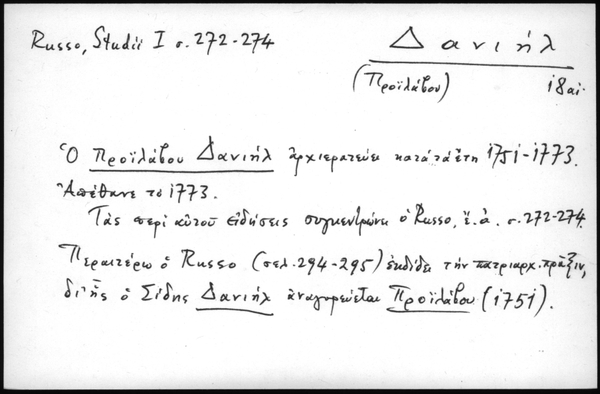 Russo, Studii I σ. 272-274
Δανιήλ
(Προϊλάβου) 18 αἰ.
Ὁ Προϊλάβου Δανιήλ ἀρχιερατεύει κατά τά ἔτη 1751-1773.
Ἀπέθανε το 1773.
Τάς περί αὐτοῦ εἰδήσεις συγκεντρώνει ὁ Russo, ἔ.ἀ. σ. 272-274.
Περαιτέρω ὁ Russo (σελ. 294-295) ἐκδίδει τήν πατριαρχ. πρᾶξιν,
δι' ἧς ὁ Σίδης Δανιήλ ἀναγορεύεται Προϊλάβου (1751).